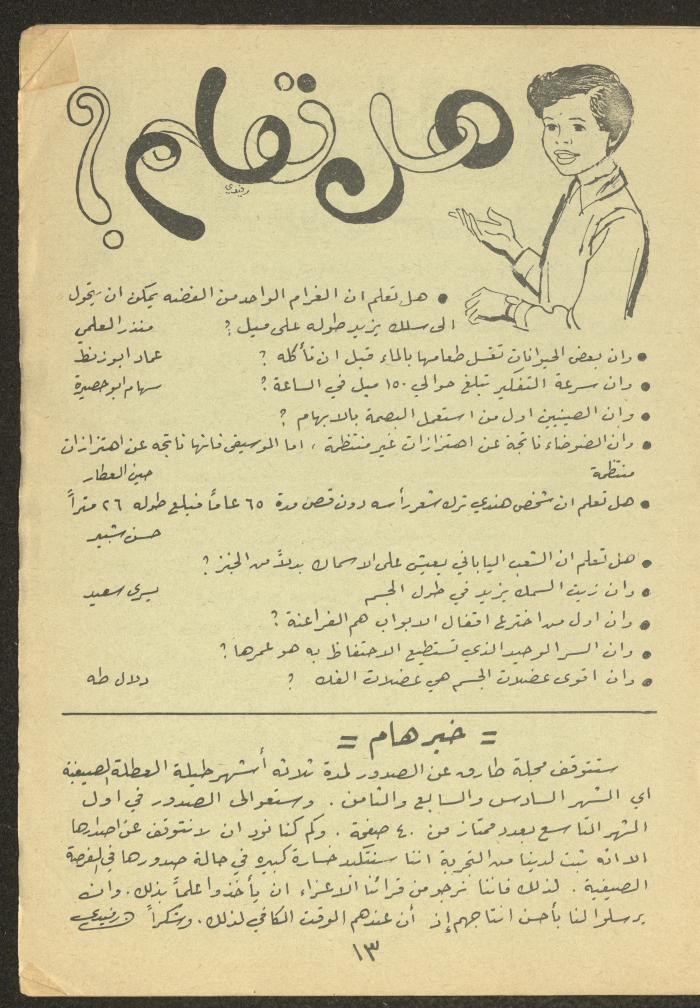 هل تعلم ؟
رفيدي
● هل تعلم ان الغرام الواحد من الفضه يمكن ان يتحول
الى سلك يزيد طوله على ميل ؟ منذر العلمي
● وان بعض الحيوانات تغسل طعامها بالماء قبل ان تأكله ؟ عماد ابو زنط
● وان سرعة التفكير تبلغ حوالي ١٥٠ ميل في الساعة ؟ سهام ابو حصيرة
● وان الصينيين اول من استعمل البصمة بالابهام ؟
● وان الضوضاء ناتجة عن اهتزازات غير منتظمة ، اما الموسيقى فانها ناتجه عن اهتزازات
منتظمة العطار
● هل تعلم ان شخص هندي ترك شعر رأسه دون قص مدة ٦٥ عاماً فبلغ طوله ٢٦ متراً
حسن شبير
● هل تعلم ان الشعب الياباني يعيش على الاسماك بدلاً من الخبز ؟
● وان زيت السمك يزيد في طول الجسم يسرى سعيد
● وان اول من اخترع اقفال الابواب هم الفراعنة ؟
● وان السر الوحيد الذي تستطيع الاحتفاظ به هو عمرها ؟
● وان اقوى عضلات الجسم هي عضلات الفك ؟ دلال طه
= خبر هام =
ستتوقف مجلة طارق عن الصدور لمدة ثلاثه أشهر طيلة العطلة الصيفية
اي الشهر السادس والسابع والثامن . وستعوالى الصدور في اول
الشهر التاسع بعدد ممتاز من ٤٠ صفحة . وكم كنا نود ان لا نتوقف عن اصدارها
الا انه ثبت لدينا من التجربة اننا سنتكبد خسارة كبيره في حالة صدورها في الفرصة
الصيفية . لذلك فاننا نرجو من قرائنا الاعزاء ان يأخذوا علماً بذلك . وان
يرسلوا لنا بأحسن انتاجهم إذ أن عندهم الوقت الكافي لذلك . وشكراً رفيدي
١٣